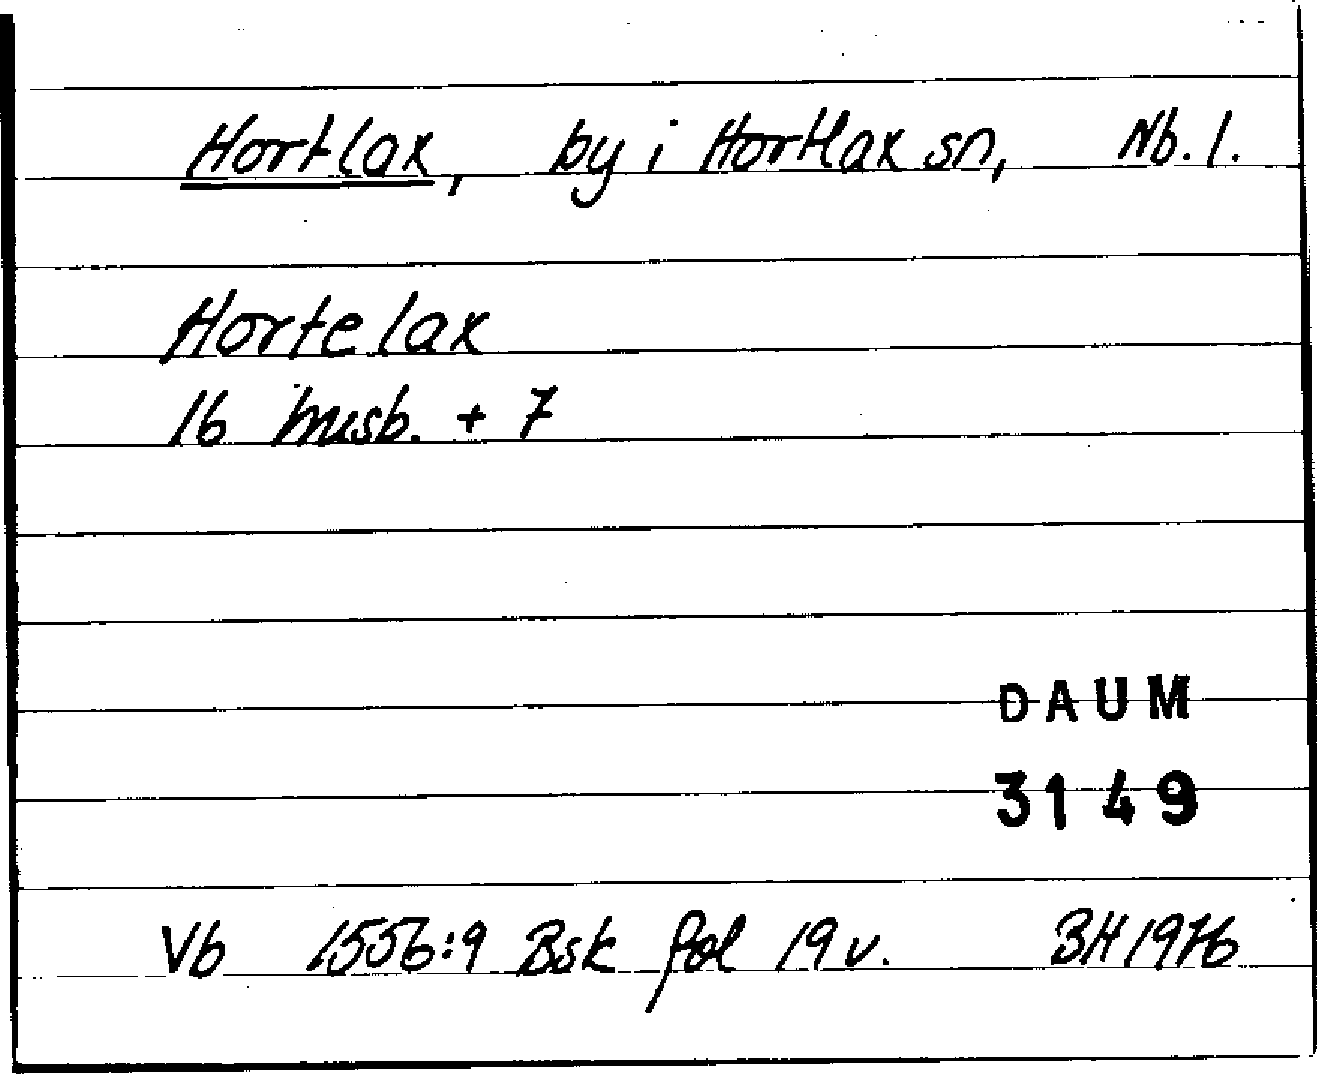 Hortlax, by i Hortlax sn, Nb. l.
Hortelax
16 husb. + 7
DAUM
3149
Vb 1556:9 Bsk fol 19 v. BH 1976